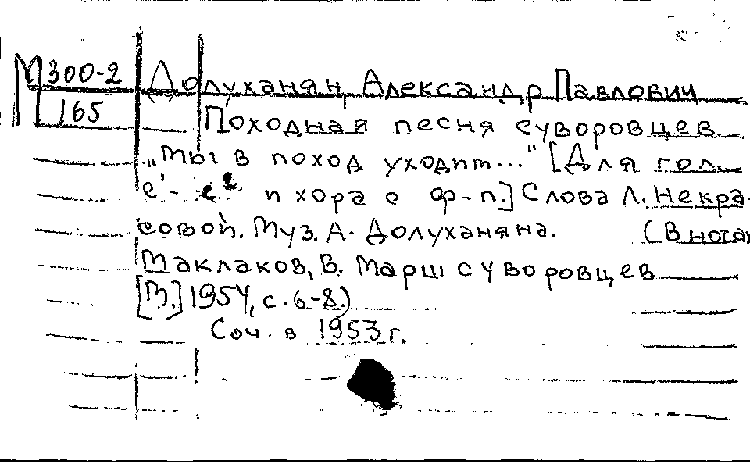 М300-2
165
Долуханян, Александр Павлович
Походная песня суворовцев
„Мы в поход уходит..." [Для гол.
e' - e² и хора с ф-п.] Слова Л. Некра-
совой. Муз. А. Долуханяна. (В нотах
Маклаков, В. Марш суворовцев
[М.] 1954, с. 6-8)
Соч. в 1953 г.